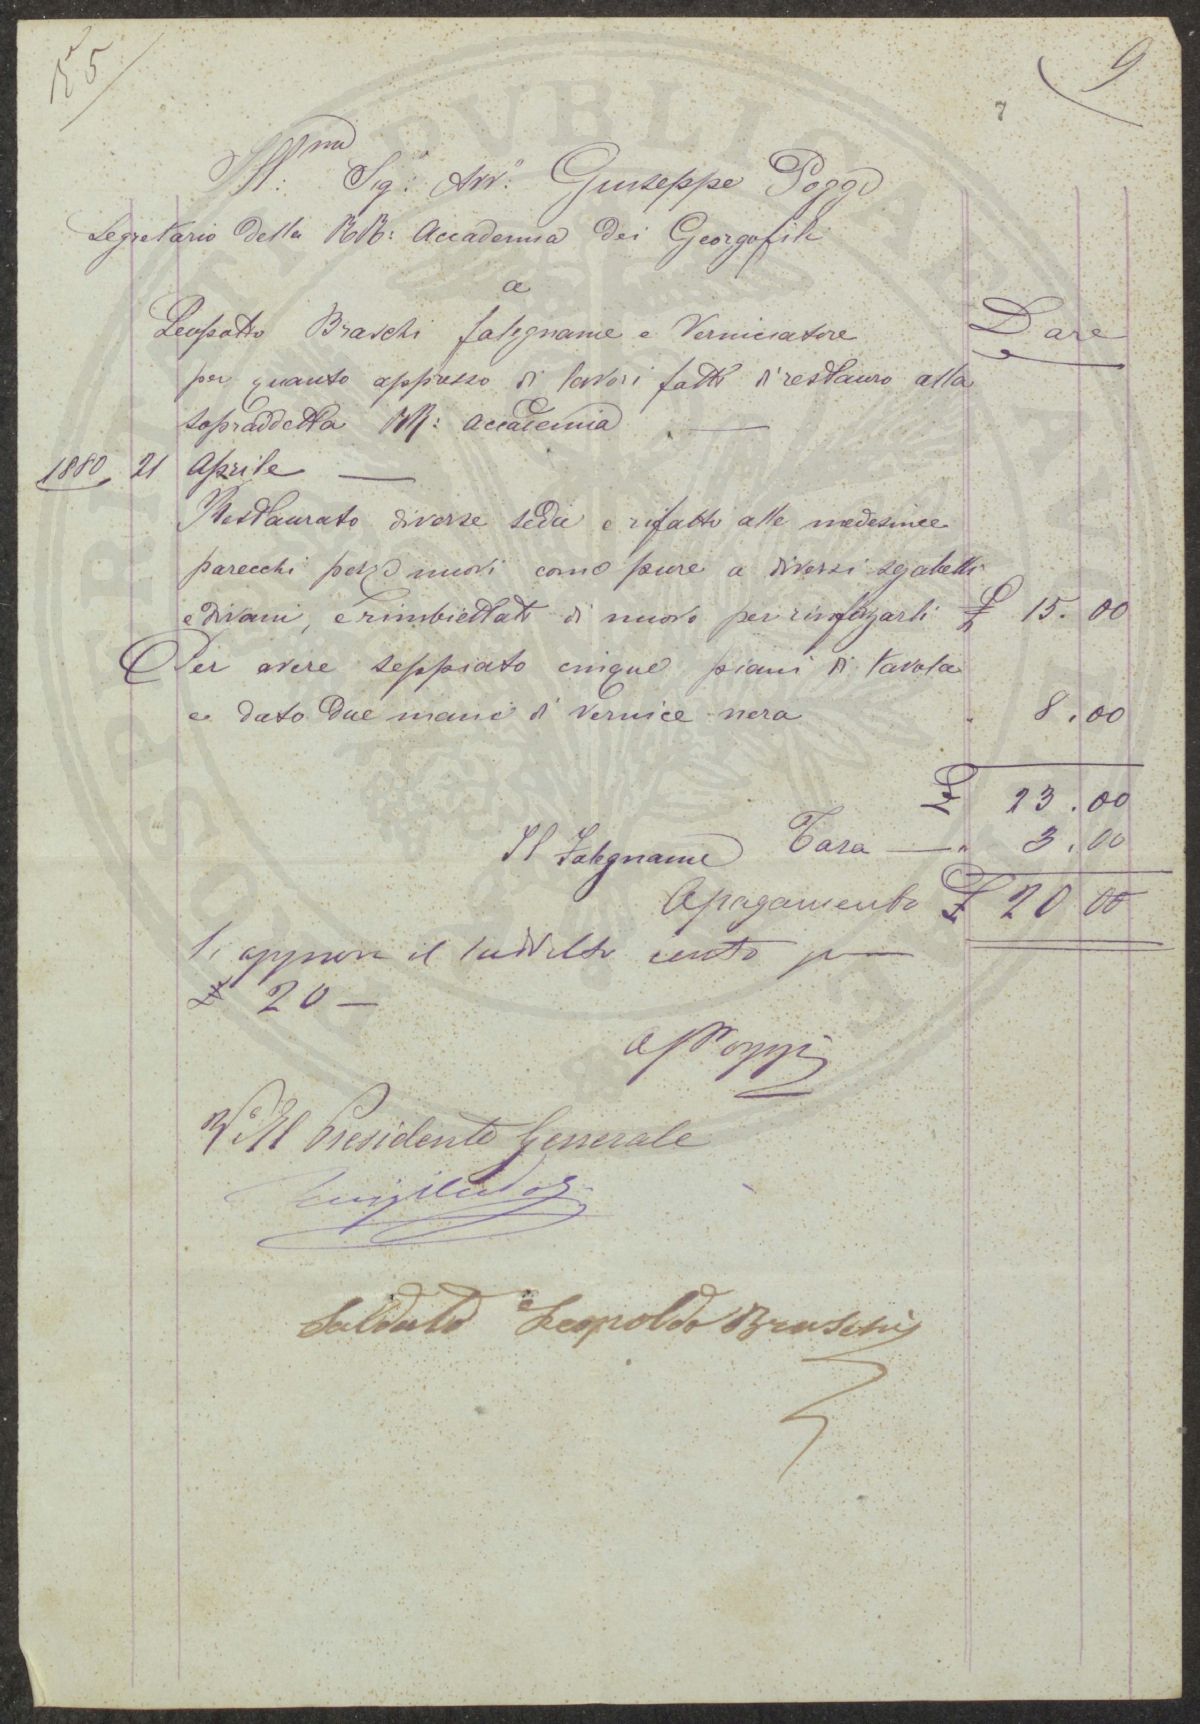 9
7
Ill:mo Sig:r Avv:o Giuseppe Poggi
Segretario della RR: Accademia dei Georgofili
a
Leopoldo Braschi falegname e Verniciatore Dare
per quanto appresso di lavori fatti di restauro alla
sopraddetta RR: Accademia
1880 21 Aprile
Restaurato diverse sedie e rifatto alle medesime
parecchi pezzi nuovi come pure a diversi sgabelli
e divani, e rimbiettati di nuovo per rinforzarli £ 15.00
Per avere seppiato cinque piani di tavola
e dato due mani di vernice nera " 8.00
£ 23.00
Il Falegname Tara — " 3.00
A pagamento £ 20 00
Si approva il suddetto conto per
£ 20 —
Poggi
V° Il Presidente Generale
Saldato Leopoldo Braschi